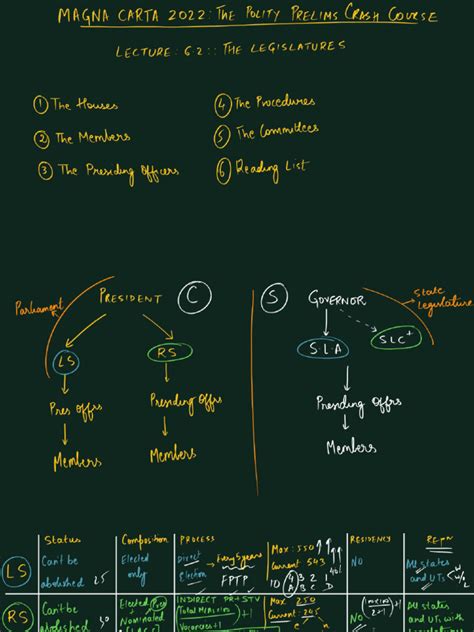 MAGNA CARTA 2022: THE POLITY PRELIMS CRASH COURSE
LECTURE: 6.2 :: THE LEGISLATURES
① The Houses
② The Members
③ The Presiding Officers
④ The Procedures
⑤ The Committees
⑥ Reading List
Parliament
PRESIDENT
C
LS
RS
Pres offrs
Presiding offrs
Members
Members
S
GOVERNOR
State
Legislature
S.L.A
SLC+
Presiding offrs
Members
Status
Composition
PROCESS
RESIDENCY
Repn
LS
Can't be
abolished
Elected
only
Direct
Election
Every 5 years
FPTP
Max: 550
Current 543
NO
All states
and UTs
RS
Can't be
abolished
Elected
Nominated
INDIRECT PR + STV
+1
Vacancies + 1
Max 250
Current 245
NO
All states
and UTs with